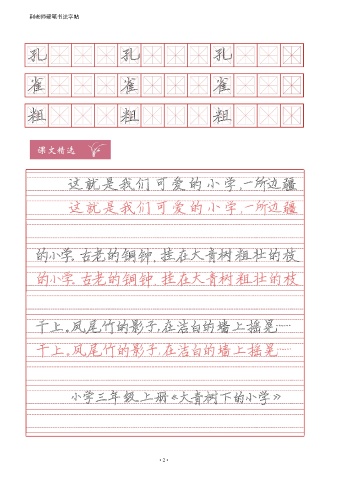 副老师硬笔书法字帖
孔 孔 孔
雀 雀 雀
粗 粗 粗
课文精选
这就是我们可爱的小学,一所边疆
这就是我们可爱的小学,一所边疆
的小学。古老的铜钟,挂在大青树粗壮的枝
的小学。古老的铜钟,挂在大青树粗壮的枝
干上。凤尾竹的影子,在洁白的墙上摇晃……
干上。凤尾竹的影子,在洁白的墙上摇晃……
小学三年级上册《大青树下的小学》
·2·